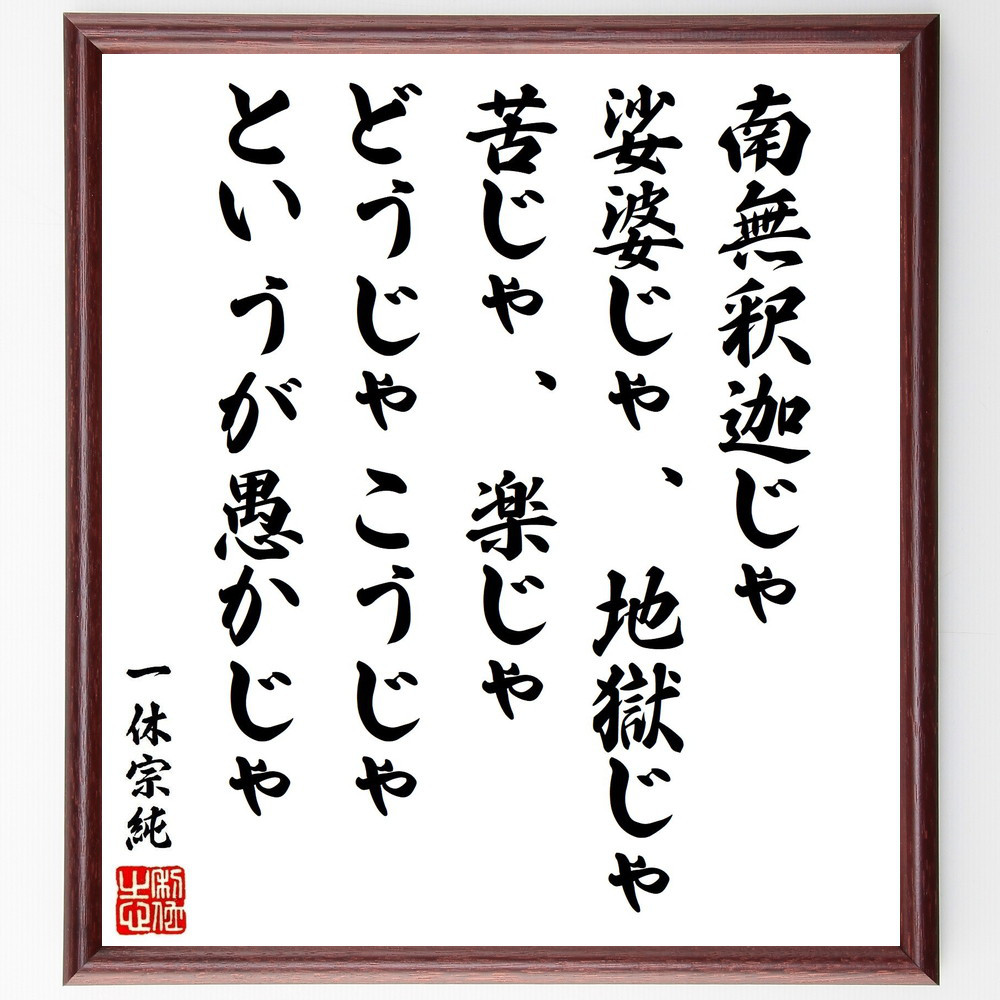 南無釈迦じゃ
娑婆じゃ、地獄じゃ
苦じゃ、楽じゃ
どうじゃこうじゃ
というが愚かじゃ
一休宗純